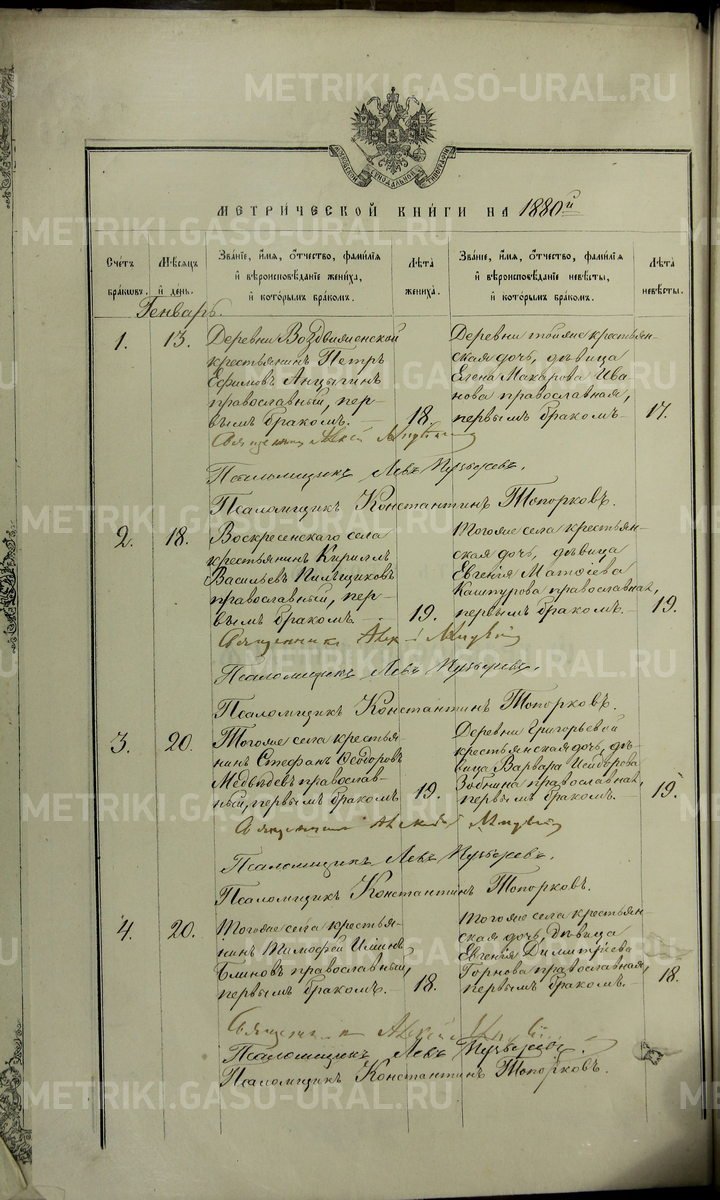 METRIKI.GASO-URAL.RU
МЕТРИЧЕСКОЙ КНИГИ НА 1880й
Счетъ браковъ.
Мѣсяцъ и день.
Званіе, имя, отчество, фамилія и вѣроисповѣданіе жениха, и которымъ бракомъ.
Лѣта жениха.
Званіе, имя, отчество, фамилія и вѣроисповѣданіе невѣсты, и которымъ бракомъ.
Лѣта невѣсты.
Генварь.
1. 13.
Деревни Воздвиженской
крестьянинъ Петръ
Ефимовъ Анцыгинъ
православный, пер-
вымъ бракомъ.
18.
Деревни тойже крестьян-
ская дочь, дѣвица
Елена Макарова Ива-
нова православная,
первымъ бракомъ.
17.
Священникъ
Псаломщикъ Левъ
Псаломщикъ Константинъ Топорковъ.
2. 18.
Воскресенскаго села
крестьянинъ Кириллъ
Васильевъ Пильщиковъ
православный, пер-
вымъ бракомъ.
19.
Тогоже села крестьян-
ская дочь, дѣвица
Евгенія Матѳіева
Каштурова православная,
первымъ бракомъ.
19.
Священникъ
Псаломщикъ Левъ
Псаломщикъ Константинъ Топорковъ.
3. 20.
Тогоже села крестья-
нинъ Стефанъ Ѳеодоровъ
Медвѣдевъ православ-
ный, первымъ бракомъ
19.
Деревни Григорьевой
крестьянская дочь, дѣ-
вица Варвара Исидорова
Зобнина православная,
первымъ бракомъ.
19.
Священникъ Алексѣй
Псаломщикъ Левъ
Псаломщикъ Константинъ Топорковъ.
4. 20.
Тогоже села крестья-
нинъ Тимофей Илиинъ
Блиновъ православный,
первымъ бракомъ.
18.
Тогоже села крестьян-
ская дочь, дѣвица
Евгенія Димитріева
Горнова православная,
первымъ бракомъ.
18.
Священникъ Алексѣй
Псаломщикъ Левъ
Псаломщикъ Константинъ Топорковъ.